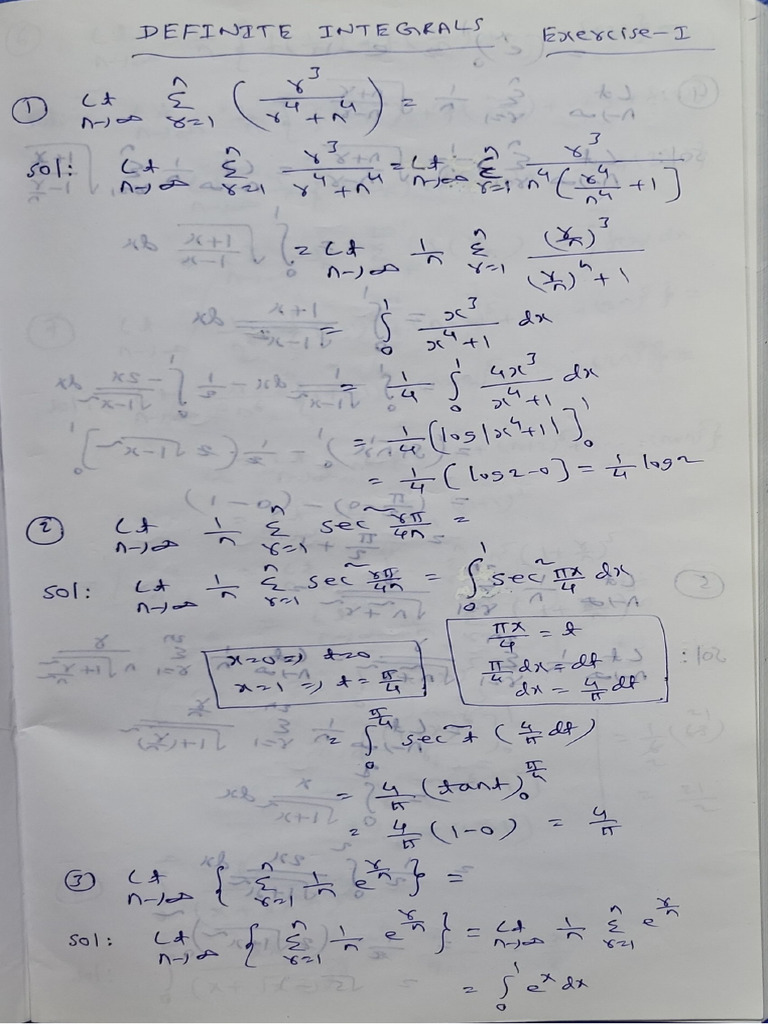 DEFINITE INTEGRALS Exercise-I
① Lt n→∞ Σ r=1 n (r³/(r⁴+n⁴)) =
Sol: Lt n→∞ Σ r=1 n r³/(r⁴+n⁴) = Lt n→∞ Σ r=1 n r³/(n⁴(r⁴/n⁴ +1]
= Lt n→∞ 1/n Σ r=1 n (r/n)³/((r/n)⁴+1)
= ∫₀¹ x³/(x⁴+1) dx
= 1/4 ∫₀¹ 4x³/(x⁴+1) dx
= 1/4 (log|x⁴+1|]₀¹
= 1/4 (log2-0] = 1/4 log2
② Lt n→∞ 1/n Σ r=1 n sec² rπ/4n =
Sol: Lt n→∞ 1/n Σ r=1 n sec² rπ/4n = ∫₀¹ sec² πx/4 dx
πx/4 = t
x=0 ⇒ t=0 π/4 dx = dt
x=1 ⇒ t = π/4 dx = 4/π dt
= ∫₀^(π/4) sec² t (4/π dt)
= 4/π (tant)₀^(π/4)
= 4/π (1-0) = 4/π
③ Lt n→∞ { Σ r=1 n 1/n e^(r/n) } =
Sol: Lt n→∞ { Σ r=1 n 1/n e^(r/n) } = Lt n→∞ 1/n Σ r=1 n e^(r/n)
= ∫₀¹ eˣ dx